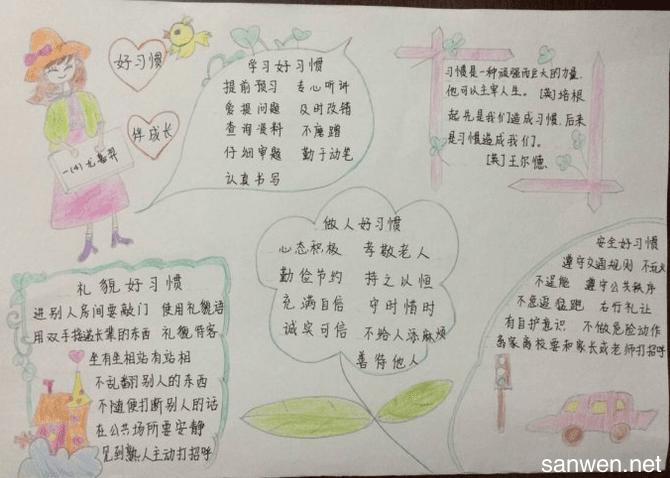 好习惯
伴成长
一(4)
学习好习惯
提前预习 专心听讲
爱提问题 及时改错
查询资料 不磨蹭
仔细审题 勤于动笔
认真书写
习惯是一种顽强而巨大的力量,
他可以主宰人生。[英]培根
起先是我们造成习惯,后来
是习惯造成我们。
[英]王尔德
做人好习惯
心态积极 孝敬老人
勤俭节约 持之以恒
充满自信 守时惜时
诚实可信 不给人添麻烦
善待他人
礼貌好习惯
进别人房间要敲门 使用礼貌语
用双手接递长辈的东西 礼貌待客
坐有坐相站有站相
不乱翻别人的东西
不随便打断别人的话
在公共场所要安静
见到熟人主动打招呼
安全好习惯
遵守交通规则 不玩火
不逞能 遵守公共秩序
不急追猛跑 右行礼让
有自护意识 不做危险动作
离家离校要和家长或老师打招呼
sanwen.net